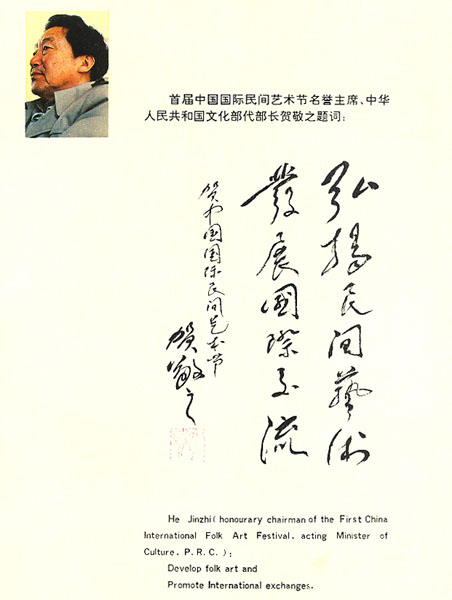 首届中国国际民间艺术节名誉主席、中华
人民共和国文化部代部长贺敬之题词：
弘揚民间藝術
發展國際交流
贺中国国际民间艺术节
贺敬之
He Jinzhi( honourary chairman of the First China
International Folk Art Festival, acting Minister of
Culture, P. R. C. ) ;
Develop folk art and
Promote International exchanges.